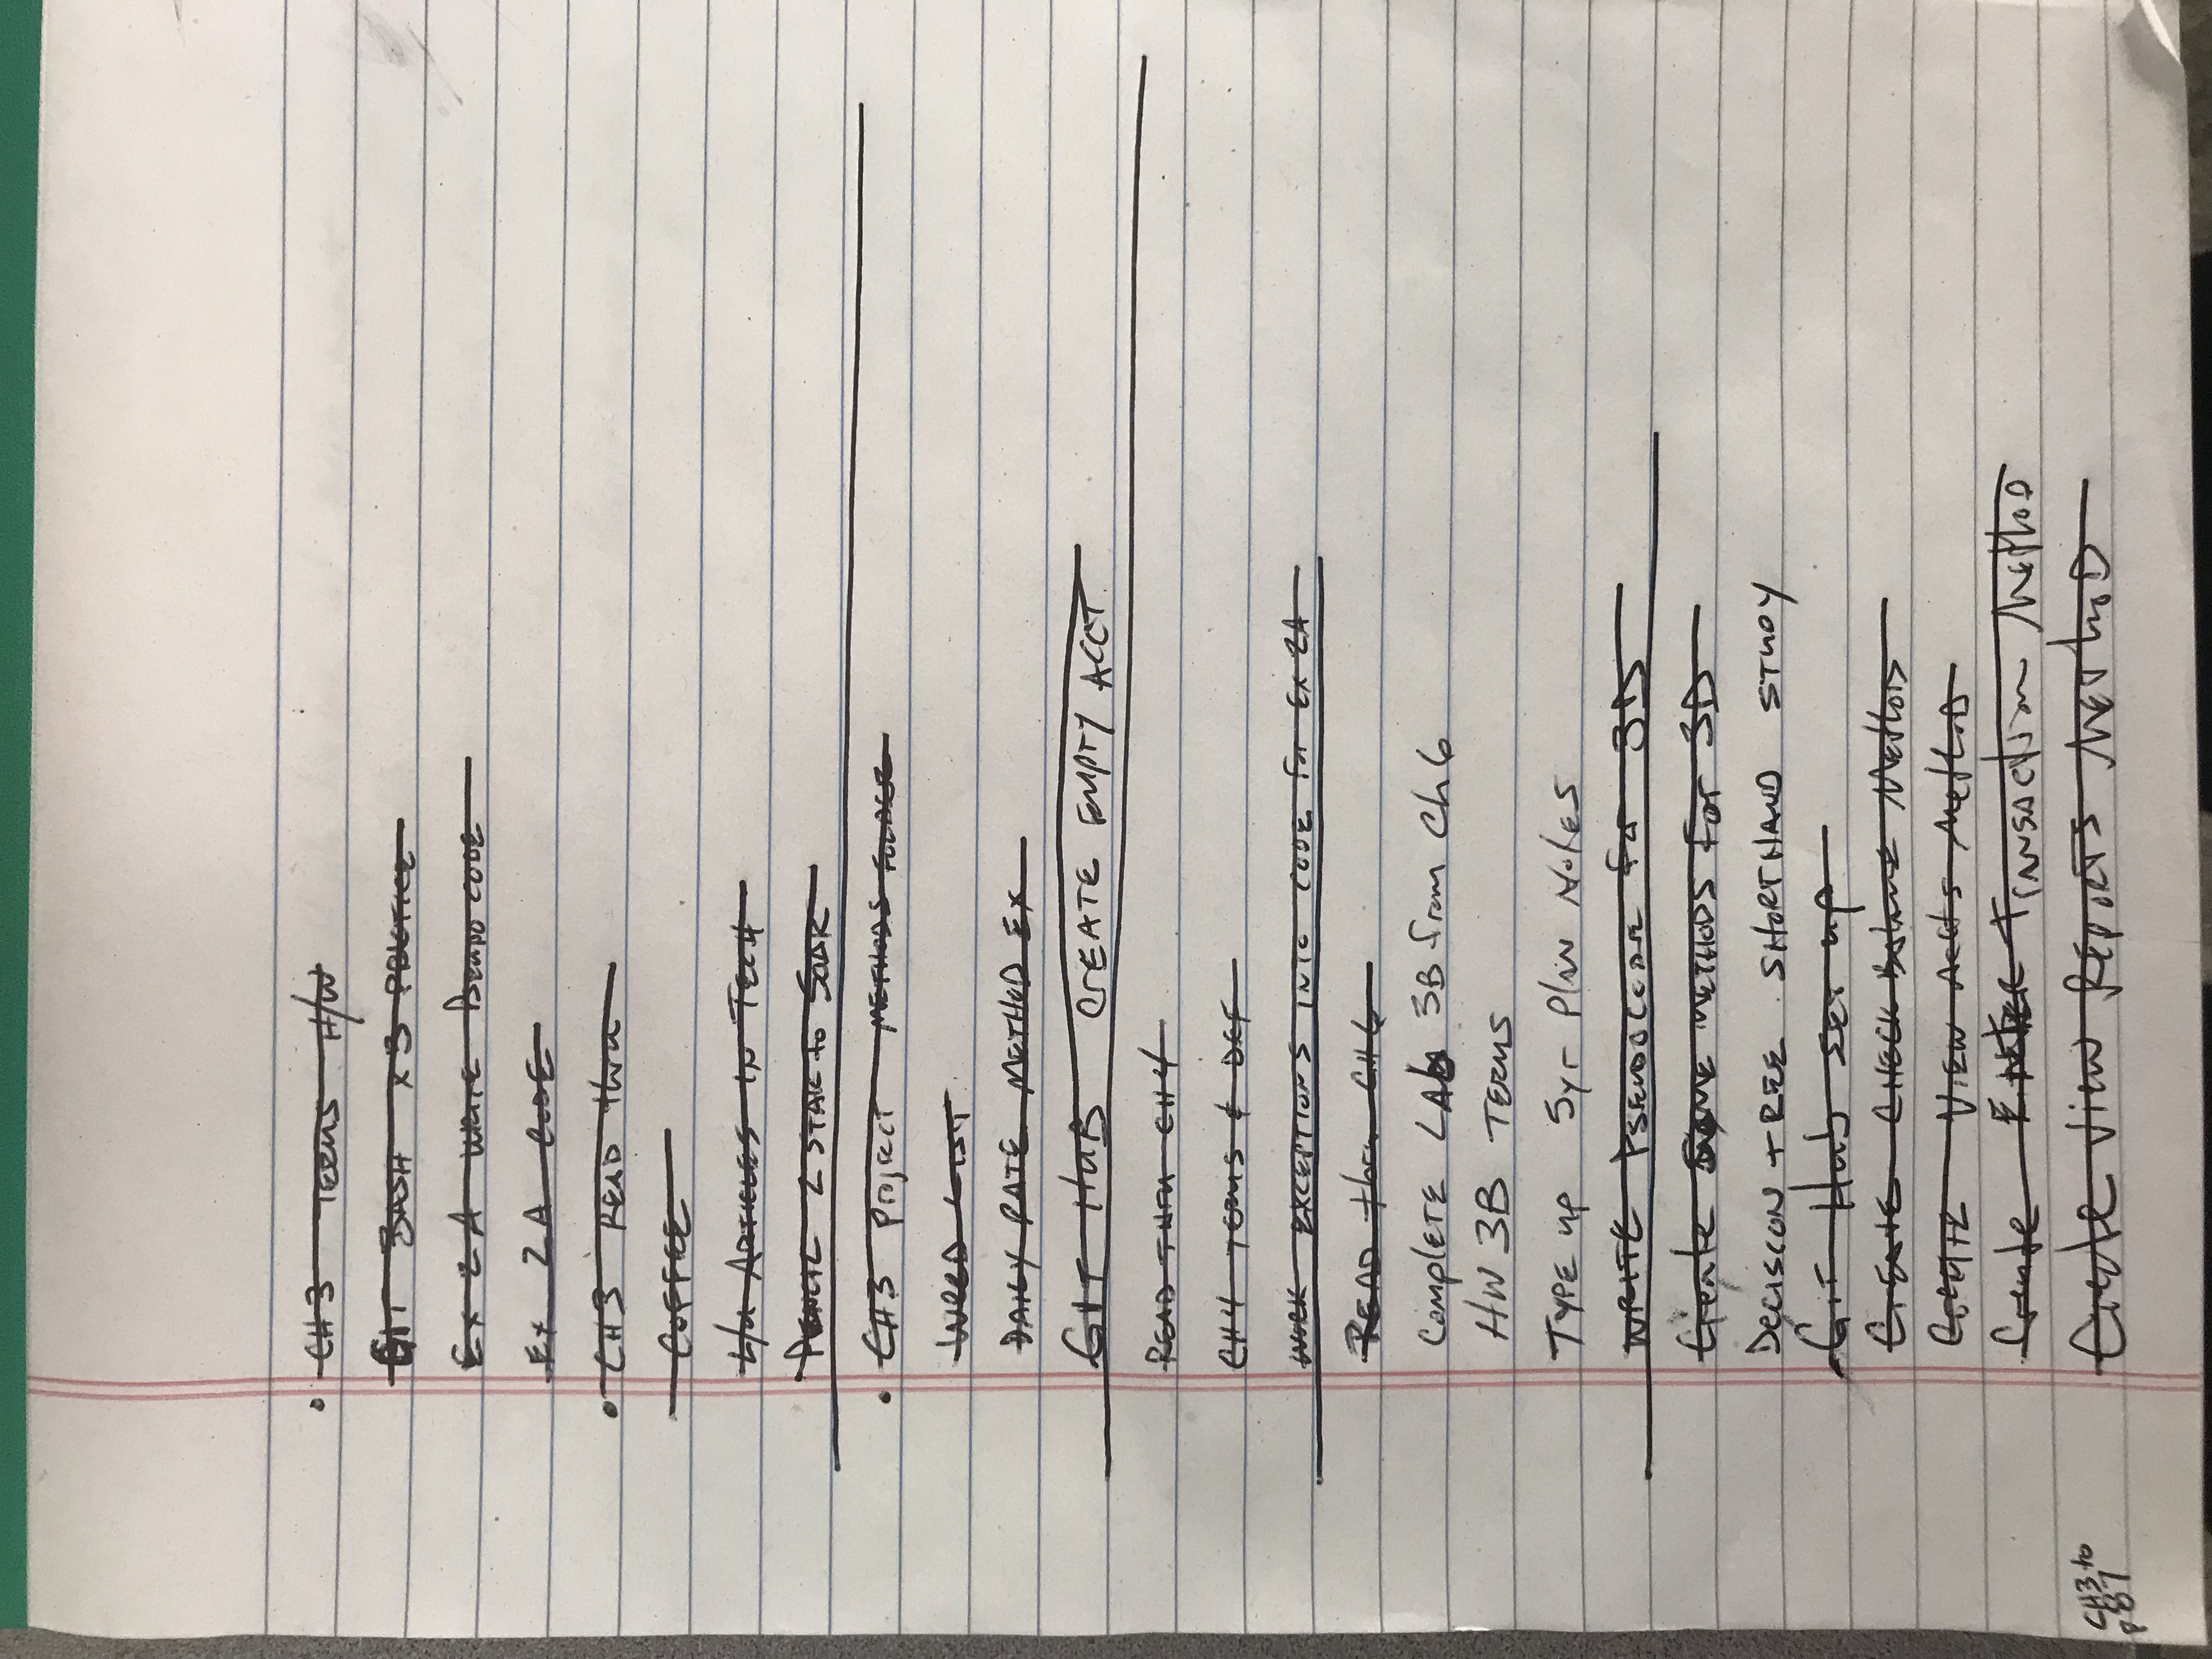 CH 3 TERMS H/W
GIT BASH x3 PRACTICE
Ex 2A WRITE PSEUDO CODE
Ex 2A CODE
CH 3 READ thru
COFFEE
L/U ARTICLES IN TECH
PENCIL 2 STAR to SOAR
CH3 Project METHODS FOLDER
WORD LIST
DAILY RATE METHOD EX
GIT HUB CREATE EMPTY ACCT.
READ THRU CH 4
CH 4 TERMS & DEF
WORK EXCEPTIONS INTO CODE for Ex 2A
READ thru CH 6
Complete LAb 3B from Ch 6
HW 3B TERMS
TYPE up 5yr PlAN NotES
WRITE PSEUDOCODE for 3D
Create SOME METHODS For 3D
DECISION TREE SHORTHAND STUDY
GIT Hub SET up
CREATE CHECK BAlance Methods
CREATE VIEW Accts MethoD
Create ENTER TrANSACtion MethoD
Create View REPORTS METHoD
CH3 to
p 87